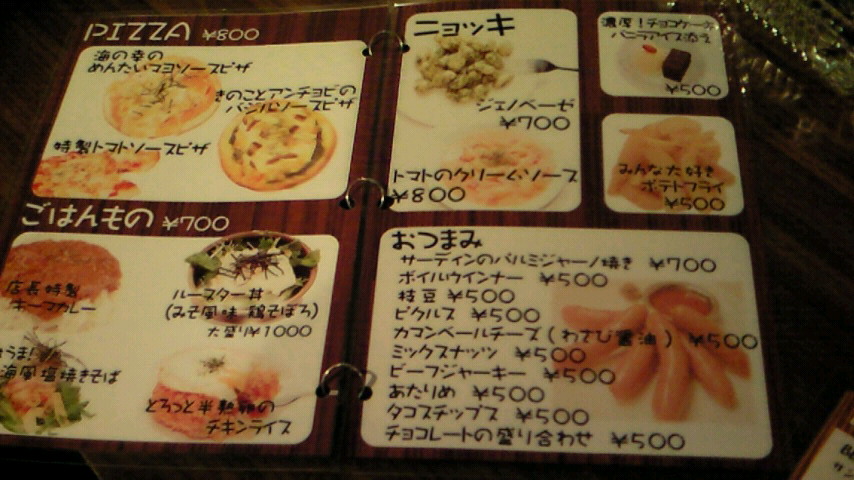 PIZZA ¥800
海の幸の
めんたいマヨソースピザ
きのことアンチョビの
バジルソースピザ
特製トマトソースピザ
ごはんもの ¥700
店長特製
キーマカレー
ルースター丼
(みそ風味 鶏そぼろ)
大盛り¥1000
うま!
海風塩焼きそば
とろっと半熟卵の
チキンライス
ニョッキ
ジェノベーゼ
¥700
トマトのクリームソース
¥800
濃厚!チョコケーキ
バニラアイス添え
¥500
みんな大好き
ポテトフライ
¥500
おつまみ
サーディンのパルミジャーノ焼き ¥700
ボイルウインナー ¥500
枝豆 ¥500
ピクルス ¥500
カマンベールチーズ(わさび醤油) ¥500
ミックスナッツ ¥500
ビーフジャーキー ¥500
あたりめ ¥500
タコスチップス ¥500
チョコレートの盛り合わせ ¥500